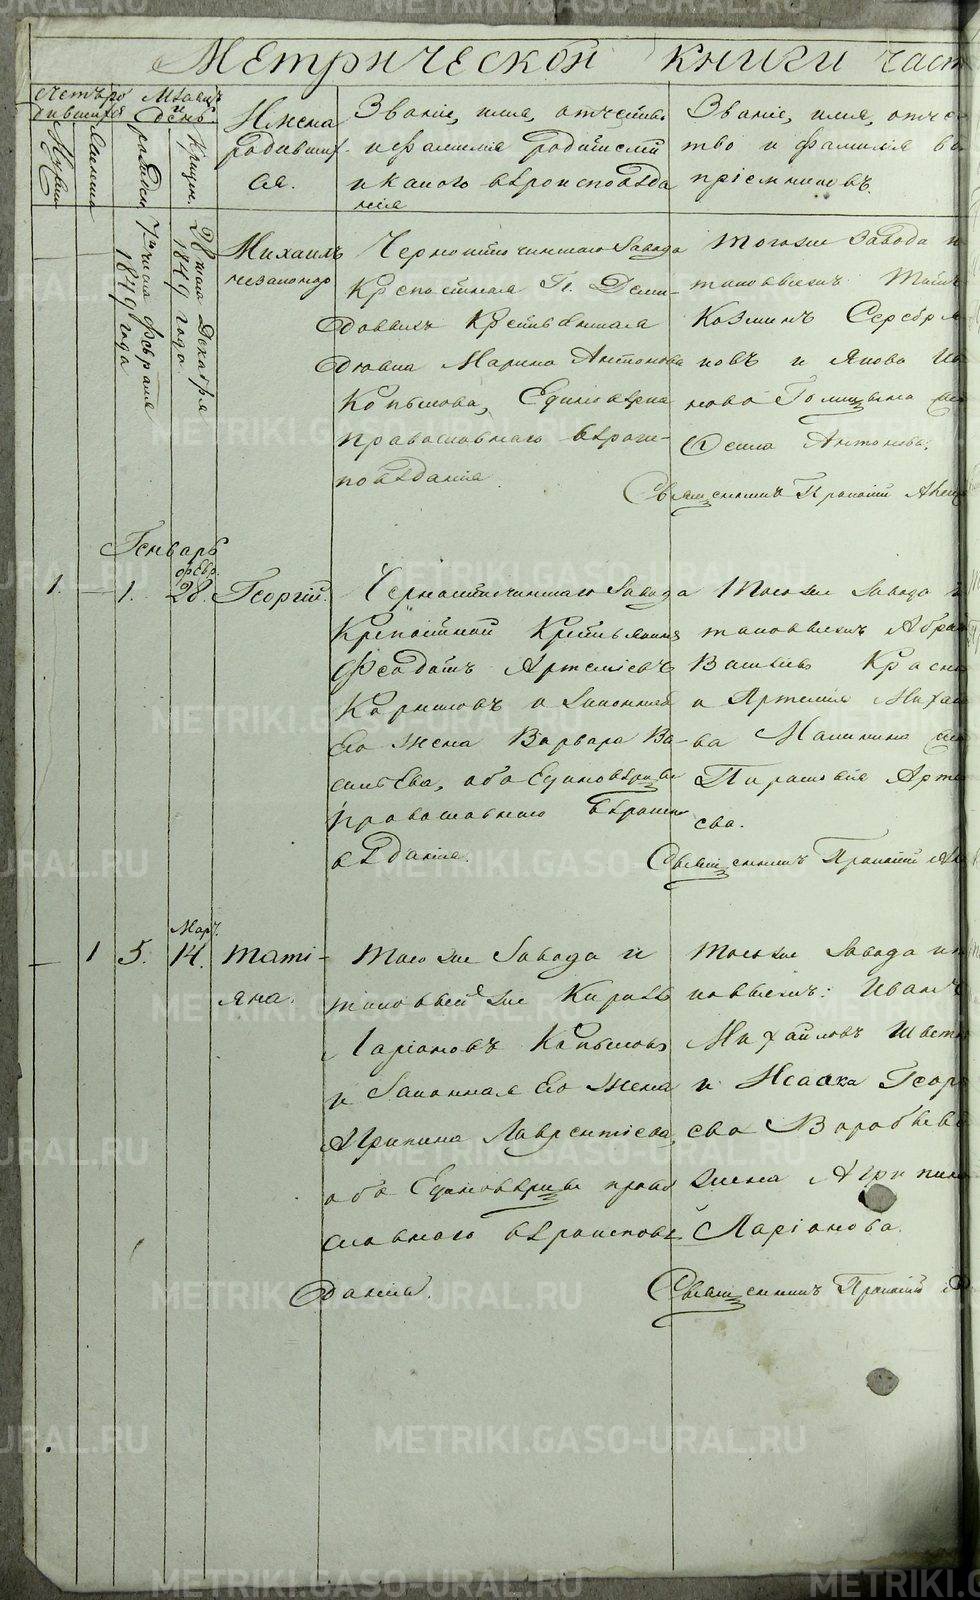 Метрической книги част
Счетъ ро
дившихся
Мѣсяцъ
и
день.
Мужи
Женска
рожден.
Крещен.
Имена
родивших
ся.
Званіе, имя, отчество
и фамилія родителей
и какого вѣроисповѣда
нія
Званіе, имя, отче
тво и фамилія во
пріемниковъ.
7 числа февраля
1849 года
28 числа Декабря
1849 года
Михаилъ
незаконнор
Черноисточинскаго Завода
Крѣпостная Г. Деми-
довыхъ Крестьянская
дѣвка Марина Антонова
Копылова, Единовѣрна
православнаго вѣрои-
повѣданія
Тогоже Завода и
таковыхъ
Козминъ Серебря
новъ и Якова Ив
нова Голицына
Антонова.
Священникъ Прокопій Алек
Генварь
февр.
1. — 1. 28. Георгій.
Черноисточинскаго Завода
Крепостной Крестьянинъ
Феодотъ Артеміевъ
Корниловъ и Законная
Его жена Варвара Ва-
сильева, оба Единовѣрцы
православнаго вѣроисп
вѣданія.
Тогоже Завода и
таковыхъ Абра
Васильевъ Красн
и Артемія Михай
ва Малинина
Параскевія Арте
ева.
Священникъ Прокопій Ал
Мар.
— 1 5. 14. Тати-
яна.
Тогоже Завода и
таковый же Кирилъ
Ларіоновъ Копыловъ
и Законная Его жена
Агрипина Лаврентіева,
оба Единовѣрцы право
славнаго вѣроисповѣ
данія.
Тогоже Завода и т
ковыхъ: Иванъ
Михайловъ Шест
и Исаака Геор
ева Воробьева
жена Агрипина
Ларіонова.
Священникъ Прокопій
METRIKI.GASO-URAL.RU